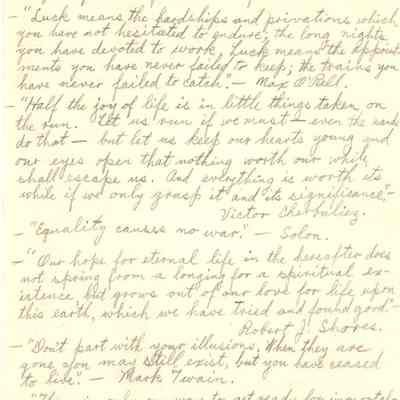 – "Luck means the hardships and privations which
you have not hesitated to endure; the long nights
you have devoted to work. Luck means the appoint-
ments you have never failed to keep; the trains you
have never failed to catch." – Max O'Rell.
– "Half the joy of life is in little things taken on
the run. Let us run if we must – even the sands
do that – but let us keep our hearts young and
our eyes open that nothing worth our while
shall escape us. And everything is worth its
while if we only grasp it and its significance." –
Victor Cherbuliez.
– "Equality causes no war." – Solon.
– "Our hope for eternal life in the hereafter does
not spring from a longing for a spiritual ex-
istence, but grows out of our love for life upon
this earth, which we have tried and found good." –
Robert J. Shores.
– "Don't part with your illusions. When they are
gone you may still exist, but you have ceased
to live." – Mark Twain.